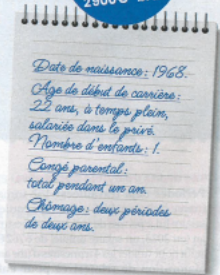 Date de naissance : 1968.
Âge de début de carrière :
22 ans, à temps plein,
salariée dans le privé.
Nombre d'enfants : 1.
Congé parental :
total pendant un an.
Chômage : deux périodes
de deux ans.